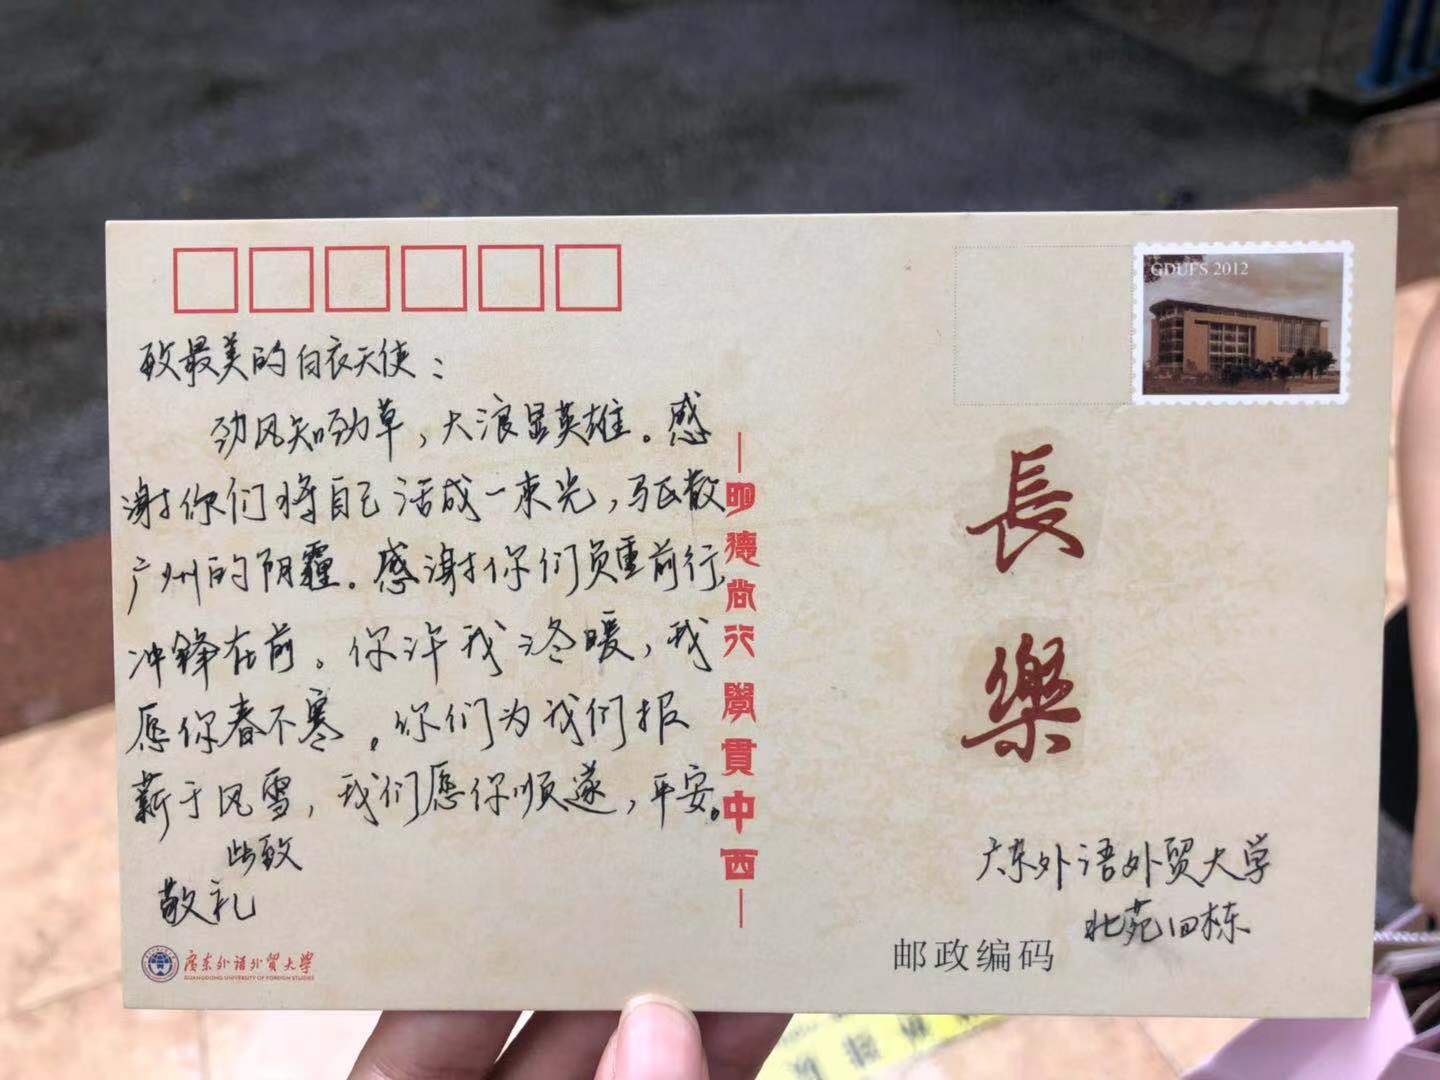 致最美的白衣天使：
劲风知劲草，大浪显英雄。感
谢你们将自己活成一束光，驱散
广州的阴霾。感谢你们负重前行，
冲锋在前。你许我冬暖，我
愿你春不寒。你们为我们报
薪于风雪，我们愿你顺遂，平安。
此致
敬礼
廣東外語外貿大學
GUANGDONG UNIVERSITY OF FOREIGN STUDIES
明德尚行 學貫中西
GDUFS 2012
長樂
广东外语外贸大学
北苑四栋
邮政编码